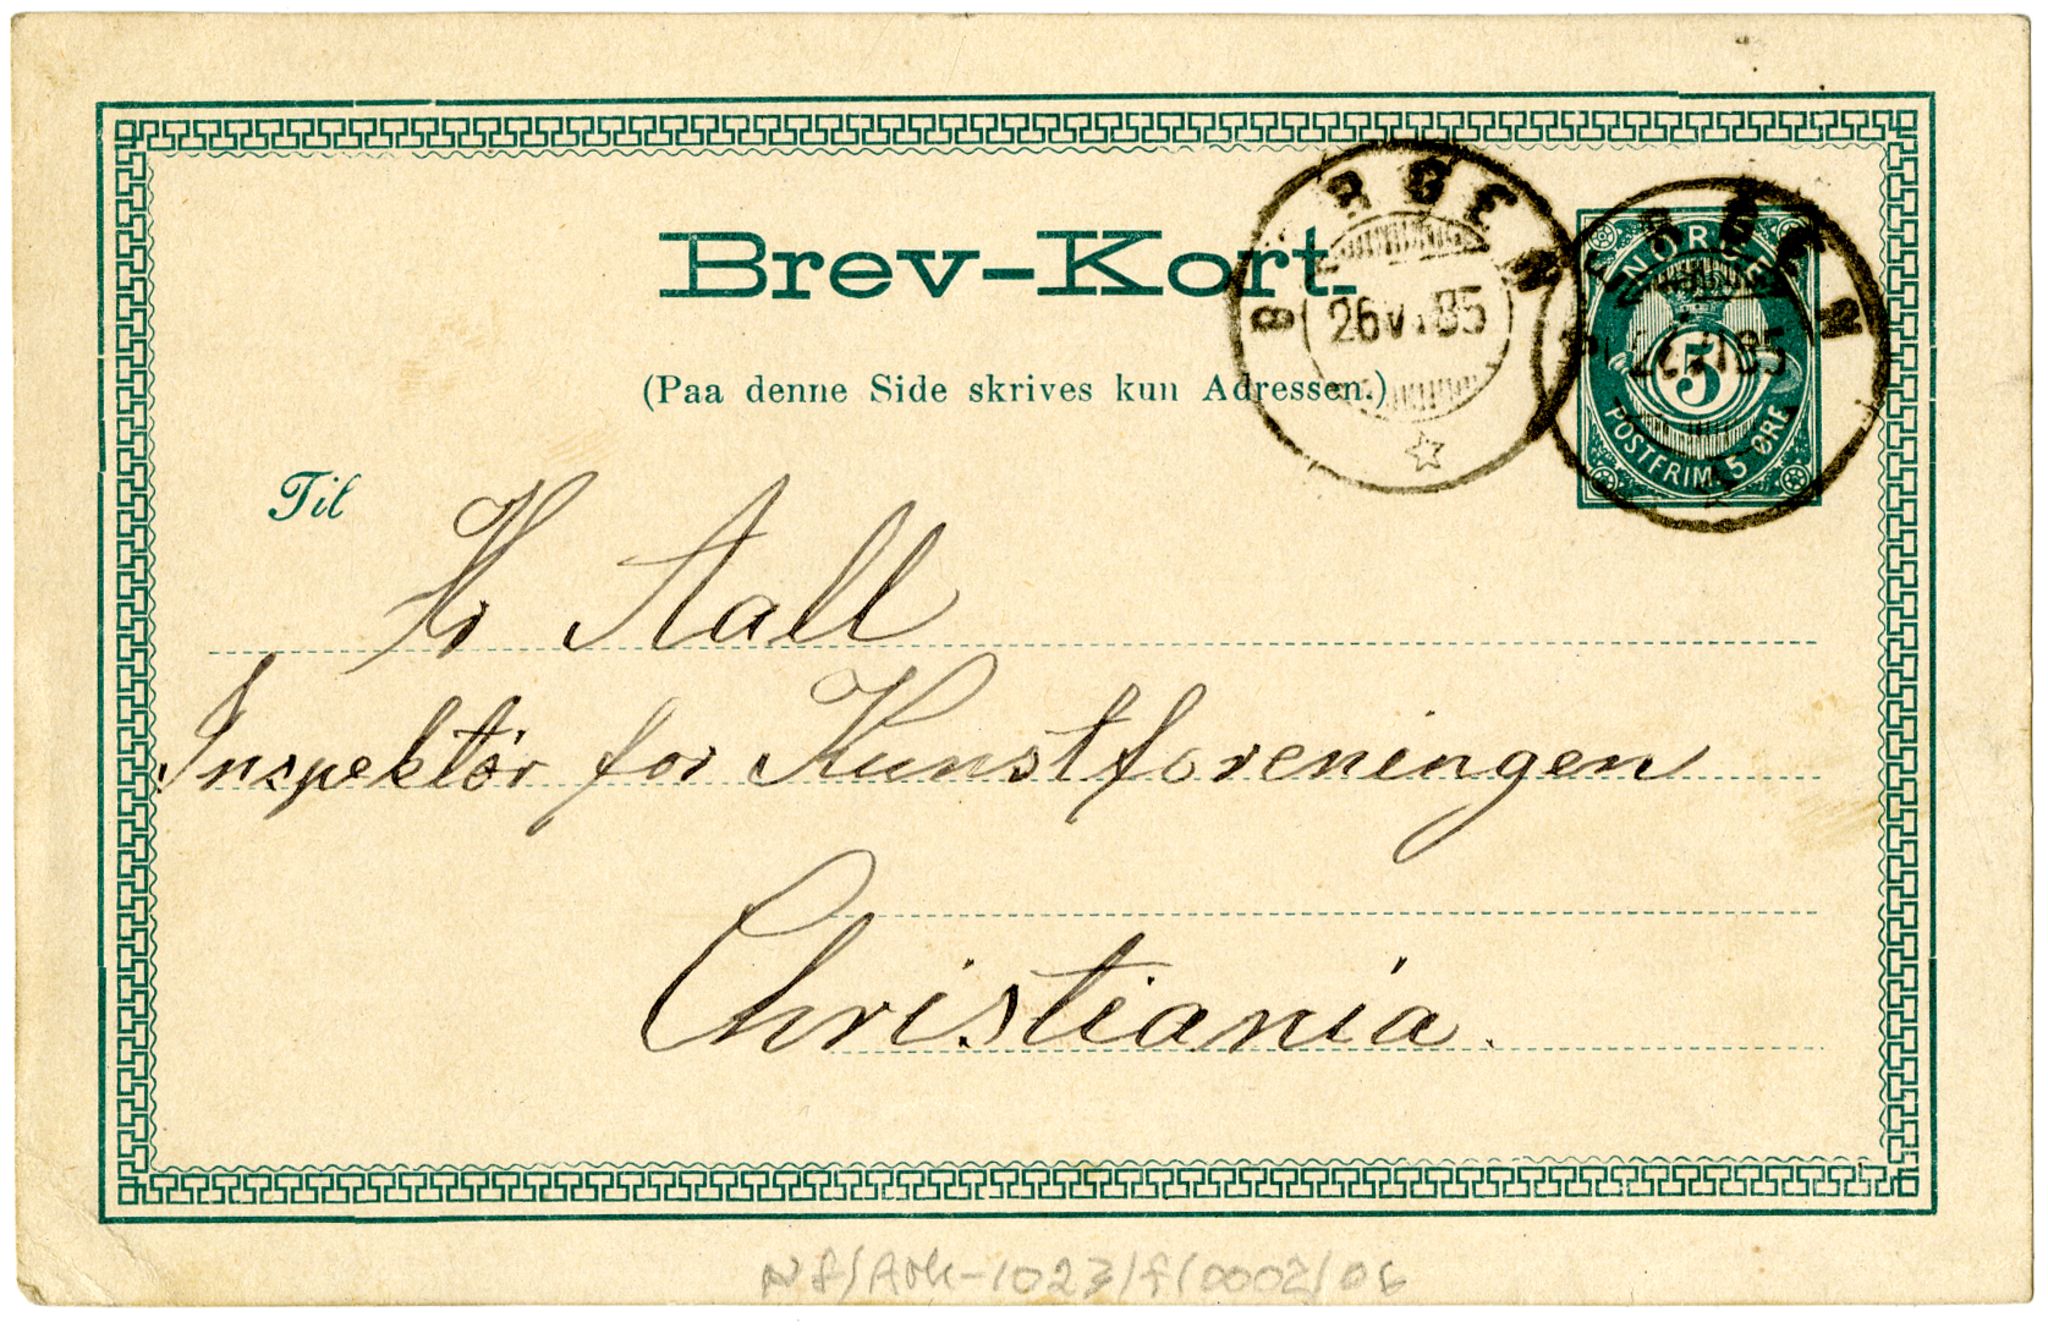 Brev-Kort.
BERGEN
26 VI 85
BERGEN
26 VI 85
NORGE
5
POSTFRIM. 5 ØRE
(Paa denne Side skrives kun Adressen.)
Til
Hr Aall
Inspektør for Kunstforeningen
Christiania.
NF/Ark-1023/f/0002/06